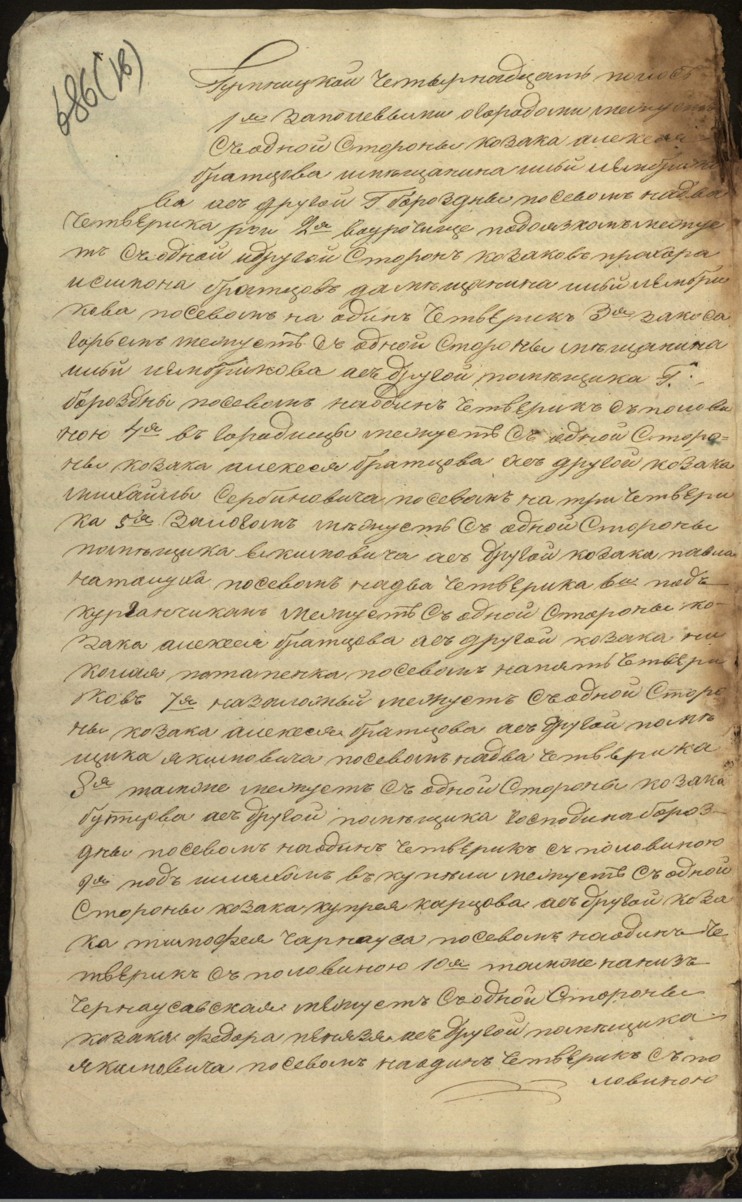 686(18)
четырнадцать нивъ
1я заполевыми огородами межуетъ
Съ одной Стороны козака алексея
братцова имещанина ильи
ва асъ другой Г бороздны посевомъ надва
четверика 2я вурочище подвязкомъ межуе
тъ Съ одной идругой Сторонъ козаковъ прохора
и братцовъ да мещанина ильи
кова посевомъ на одинъ четверикъ 3я
межуетъ Съ одной Стороны мещанина
ильи асъ другой помещика Г:
бороздны посевомъ наодинъ четверикъ съ полови
ною 4я въ городищы межуетъ Съ одной Сторо=
ны козака алексея братцова асъ другой козака
михайлы Сербиновича посевомъ на три четвери
ка 5я Залогомъ межуетъ Съ одной Стороны
помещика якимовича асъ другой козака павла
посевомъ надва четверика 6я подъ
курганчикомъ межуетъ Съ одной Стороны ко-
зака алексея братцова асъ другой козака ни
колая потапенка посевомъ напять четвери
ковъ 7я межуетъ Съ одной Сторо
ны козака алексея братцова асъ другой поме
щика якимовича посевомъ надва четверика
8я также межуетъ Съ одной Стороны козака
асъ другой помещика господина бороз
дны посевомъ наодинъ четверикъ съ половиною
9я подъ шляхомъ межуетъ Съ одной
Стороны козака купрея карцова асъ другой коза
ка тимофея чарнауса посевомъ наодинъ че
тверикъ съ половиною 10я также нанизъ
чернаусавская межуетъ Съ одной Стороны
козака федора пенязя асъ другой помещика
якимовича посевомъ наодинъ четверикъ съ по
ловиною